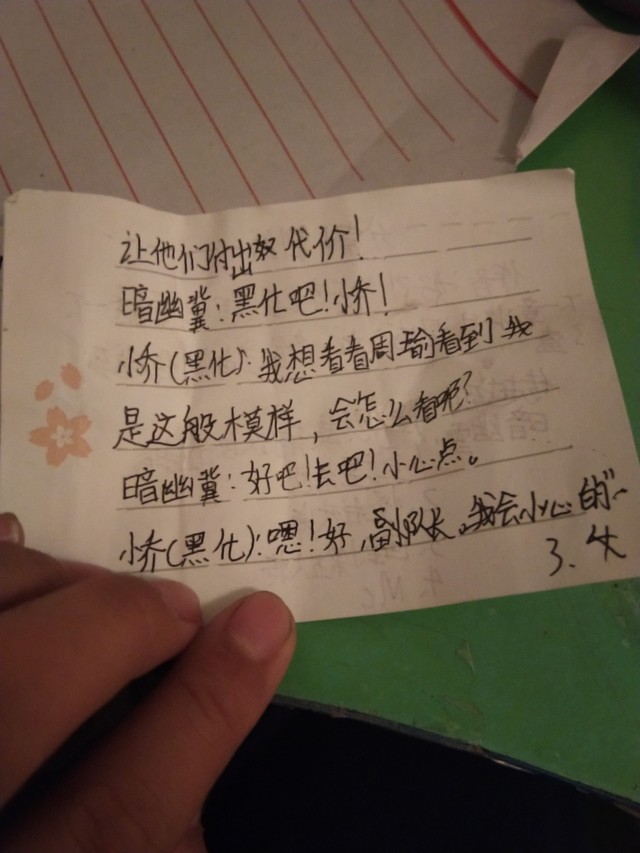 让他们付出代价！
暗幽冀：黑化吧！小乔！
小乔（黑化）：我想看看周瑜看到我
是这般模样，会怎么看呢？
暗幽冀：好吧！去吧！小心点。
小乔（黑化）：嗯！好，副队长，我会小心的~
3.